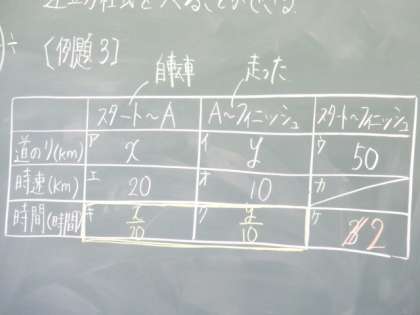 連立方程式をつくることができる
[例題3]
自転車 走った
スタート〜A A〜フィニッシュ スタート〜フィニッシュ
道のり(km) ア x イ y ウ 50
時速(km) エ 20 オ 10 カ
時間(時間) キ x/20 ク y/10 ケ 2